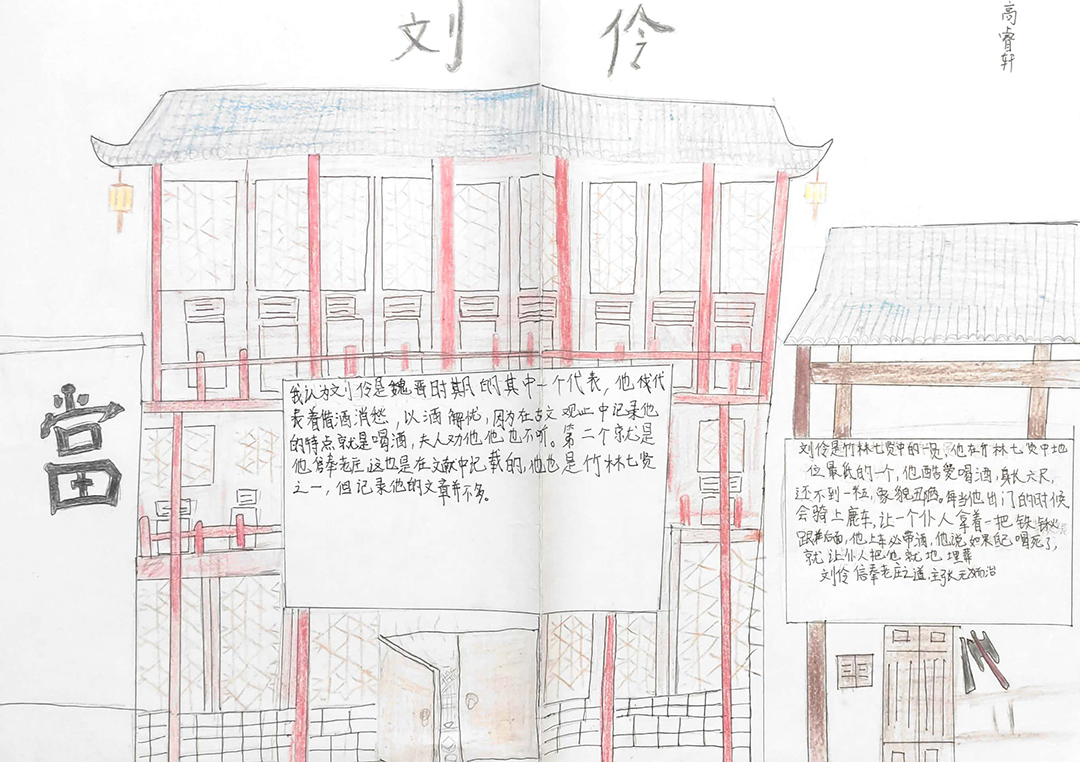 刘伶
高睿轩
當
我认为刘伶是魏晋时期的其中一个代表，他代代
表着借酒消愁，以酒解忧，因为在古文观止中记录他
的特点就是喝酒，夫人劝他，他也不听。第二个就是
他信奉老庄，这也是在文献中记载的，他也是竹林七贤
之一，但记录他的文章并不多。
刘伶是竹林七贤中的一员，他在竹林七贤中地
位最低的一个，他酷爱喝酒，身长六尺，
还不到一米五，象貌丑陋。每当他出门的时候
会骑上鹿车，让一个仆人拿着一把铁锹
跟在后面，他上车必带酒，他说如果自己喝死了，
就让仆人把他就地埋葬
刘伶信奉老庄之道，主张无为而治